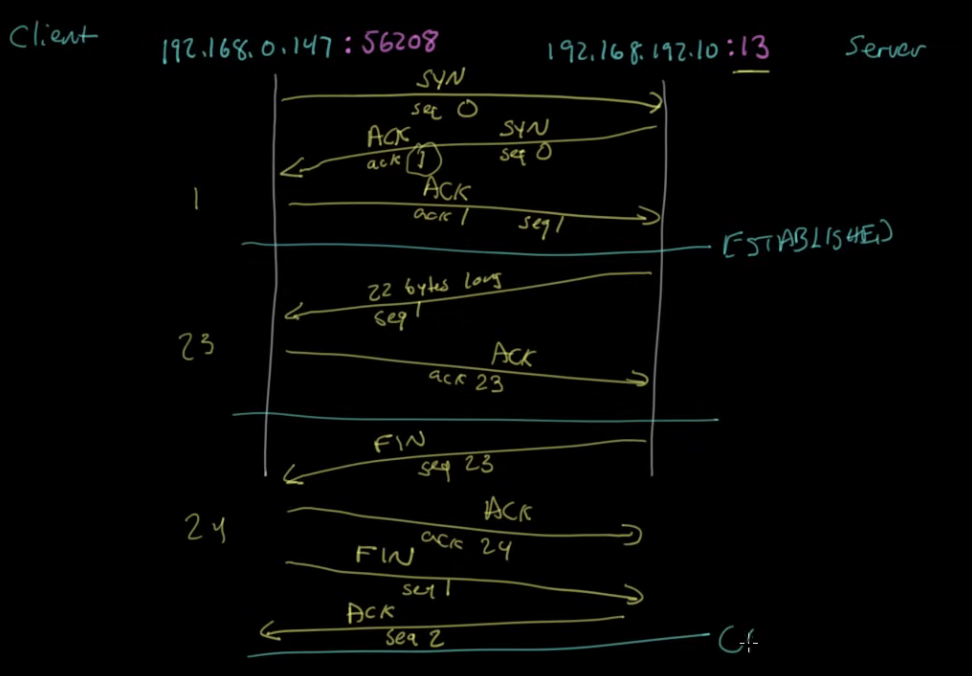 Client 192.168.0.147:56208 192.168.192.10:13 Server
SYN
seq 0
ACK SYN
ack 1 seq 0
1 ACK
ack 1 seq 1
ESTABLISHED
22 bytes long
seq 1
23 ACK
ack 23
FIN
seq 23
24 ACK
ack 24
FIN
seq 1
ACK
seq 2